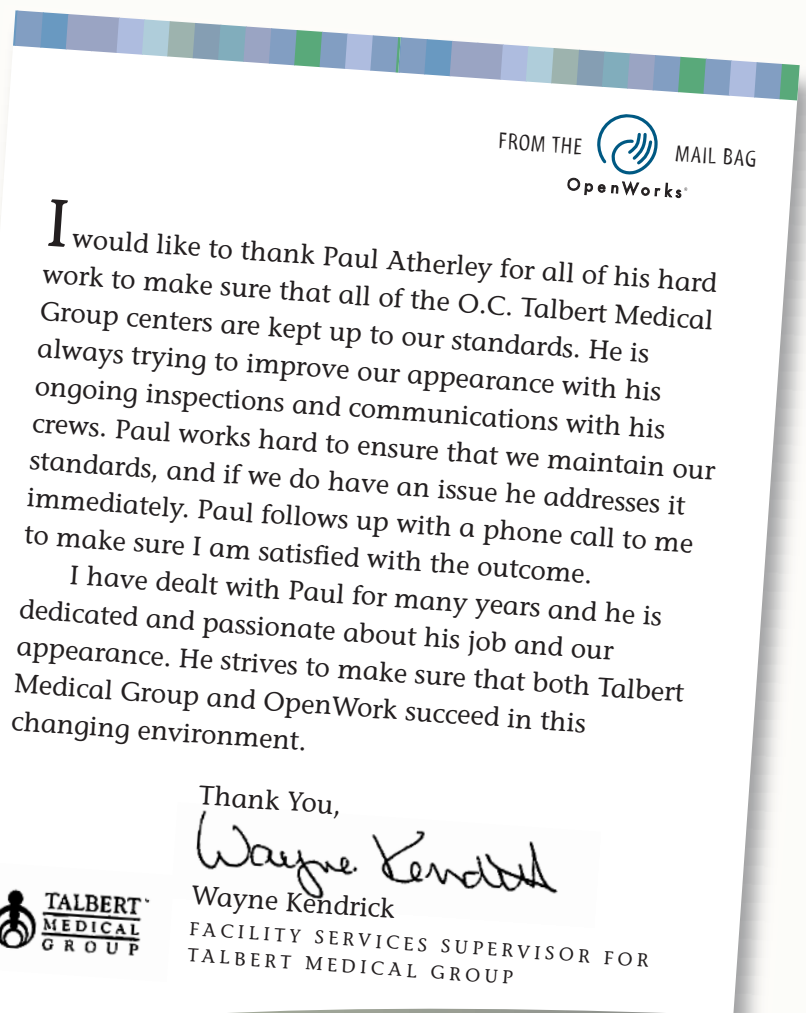 FROM THE OpenWorks MAIL BAG
I would like to thank Paul Atherley for all of his hard
work to make sure that all of the O.C. Talbert Medical
Group centers are kept up to our standards. He is
always trying to improve our appearance with his
ongoing inspections and communications with his
crews. Paul works hard to ensure that we maintain our
standards, and if we do have an issue he addresses it
immediately. Paul follows up with a phone call to me
to make sure I am satisfied with the outcome.
I have dealt with Paul for many years and he is
dedicated and passionate about his job and our
appearance. He strives to make sure that both Talbert
Medical Group and OpenWork succeed in this
changing environment.
Thank You,
Wayne Kendrick
Wayne Kendrick
FACILITY SERVICES SUPERVISOR FOR
TALBERT MEDICAL GROUP
TALBERT™
MEDICAL
GROUP